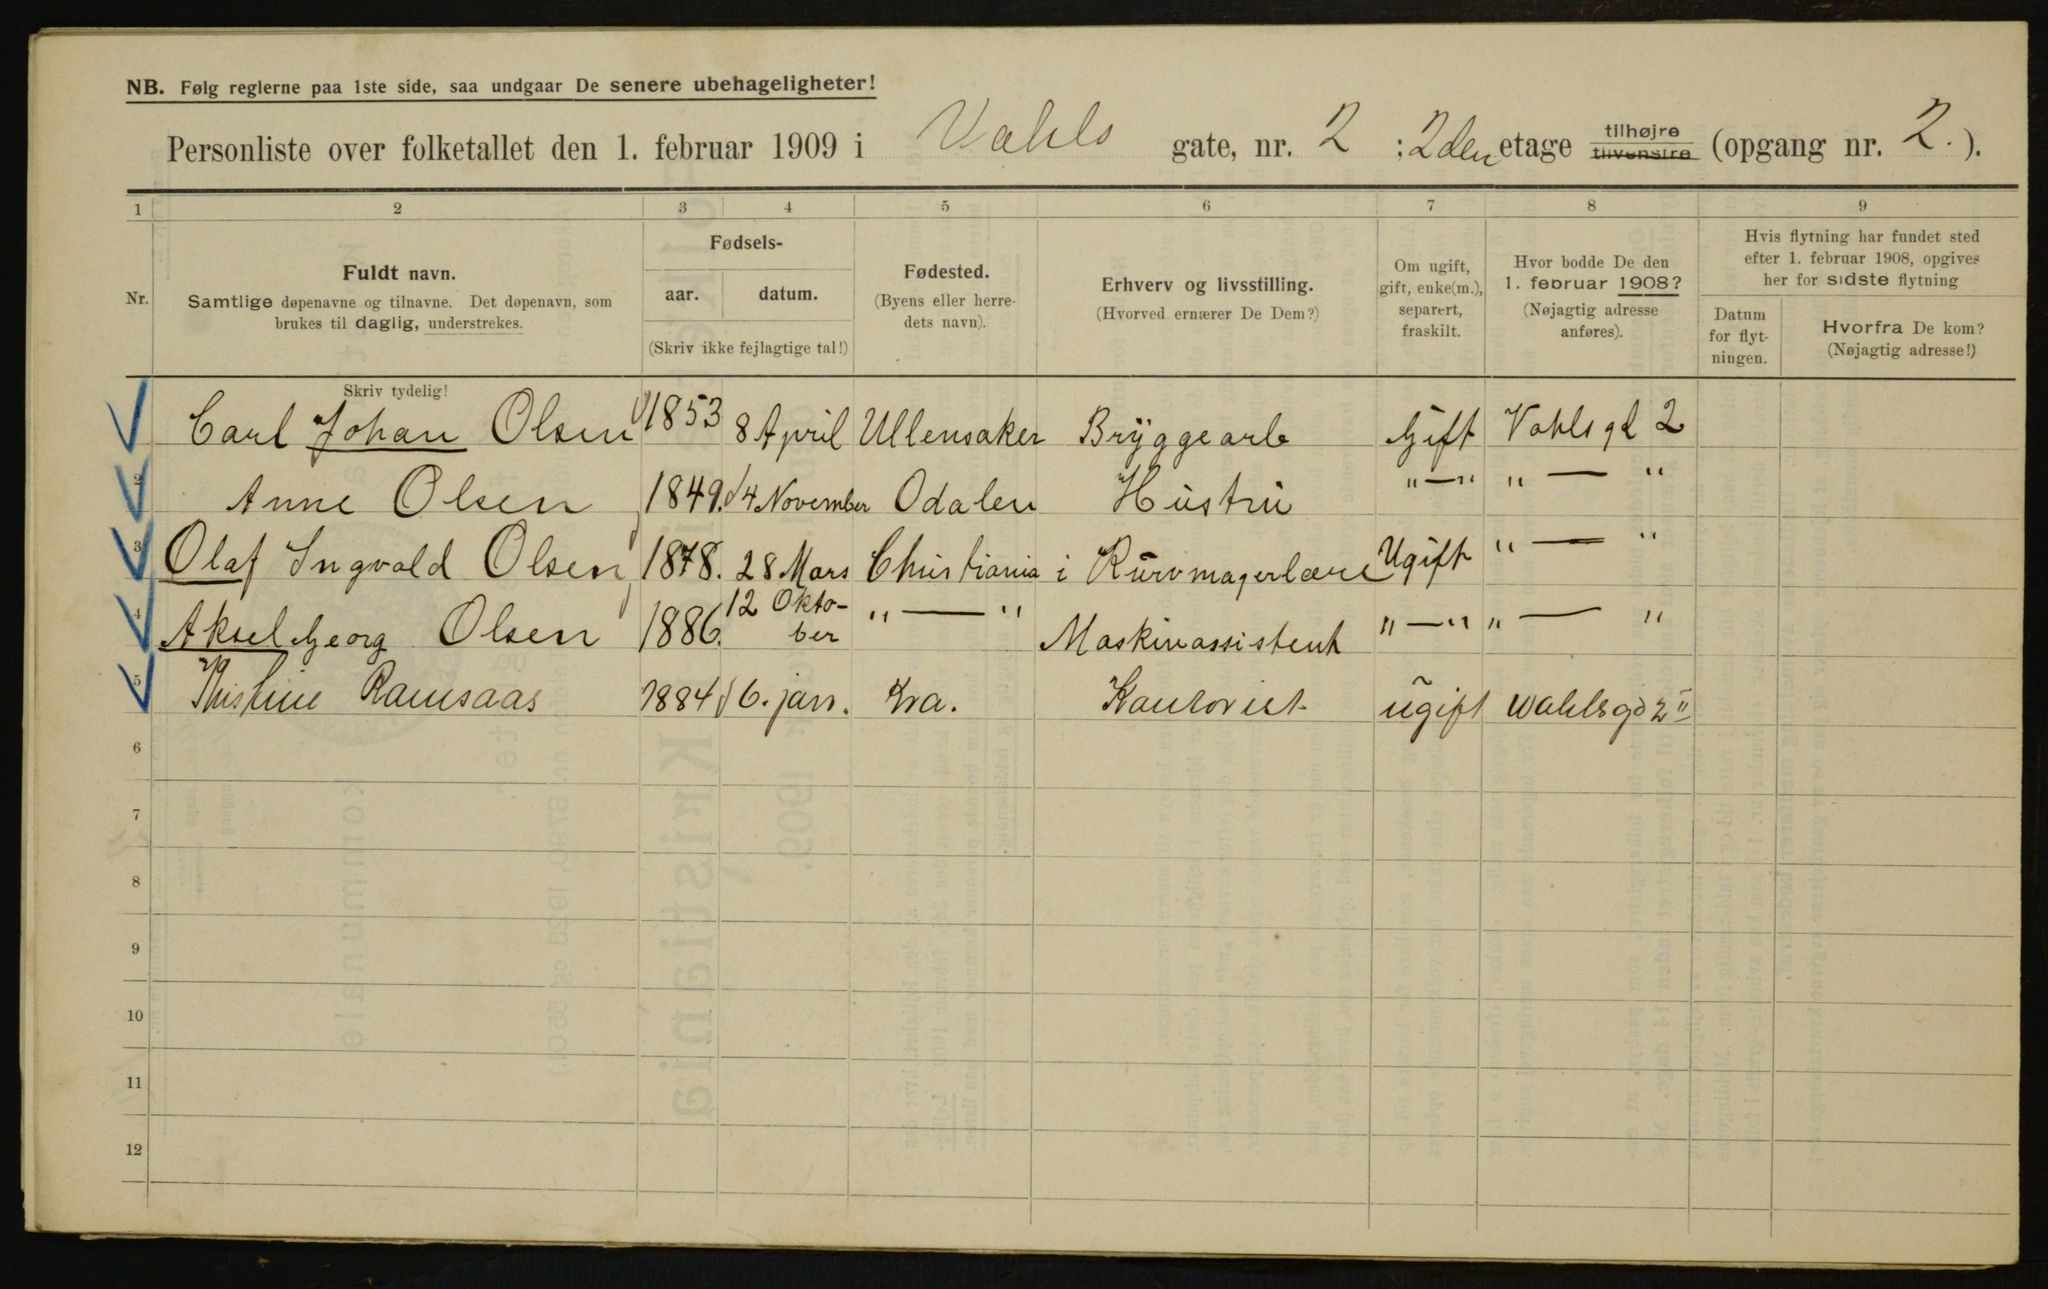 NB. Følg reglerne paa 1ste side, saa undgaar De senere ubehageligheter!
Personliste over folketallet den 1. februar 1909 i Vahls gate, nr. 2 : 2den etage tilhøjre tilvenstre (opgang nr. 2. ).
1 2 3 4 5 6 7 8 9
Nr. Fuldt navn. Samtlige døpenavne og tilnavne. Det døpenavn, som brukes til daglig, understrekes.
Fødsels-
aar. datum.
(Skriv ikke fejlagtige tal!)
Fødested. (Byens eller herredets navn).
Erhverv og livsstilling.
(Hvorved ernærer De Dem?)
Om ugift, gift, enke(m.), separert, fraskilt.
Hvor bodde De den 1. februar 1908? (Nøjagtig adresse anføres).
Hvis flytning har fundet sted
efter 1. februar 1908, opgives
her for sidste flytning
Datum for flytningen.
Hvorfra De kom?
(Nøjagtig adresse!)
Skriv tydelig!
Carl Johan Olsen 1853 8 April Ullensaker Bryggearb Gift Vahlsgd 2
2 Anne Olsen 1849. 14 November Odalen Hustru "—" " — "
3 Olaf Ingvald Olsen 1878. 28 Mars Christiania i Kurvmagerlære Ugift " — "
4 Aksel Georg Olsen 1886. 12 Okto-
ber " — " Maskinassistent "—" " — "
5 Ramsaas 1884 6. jan. Kra. Kontorist ugift Wahlsgd 2 II
6
7
8
9
10
11
12